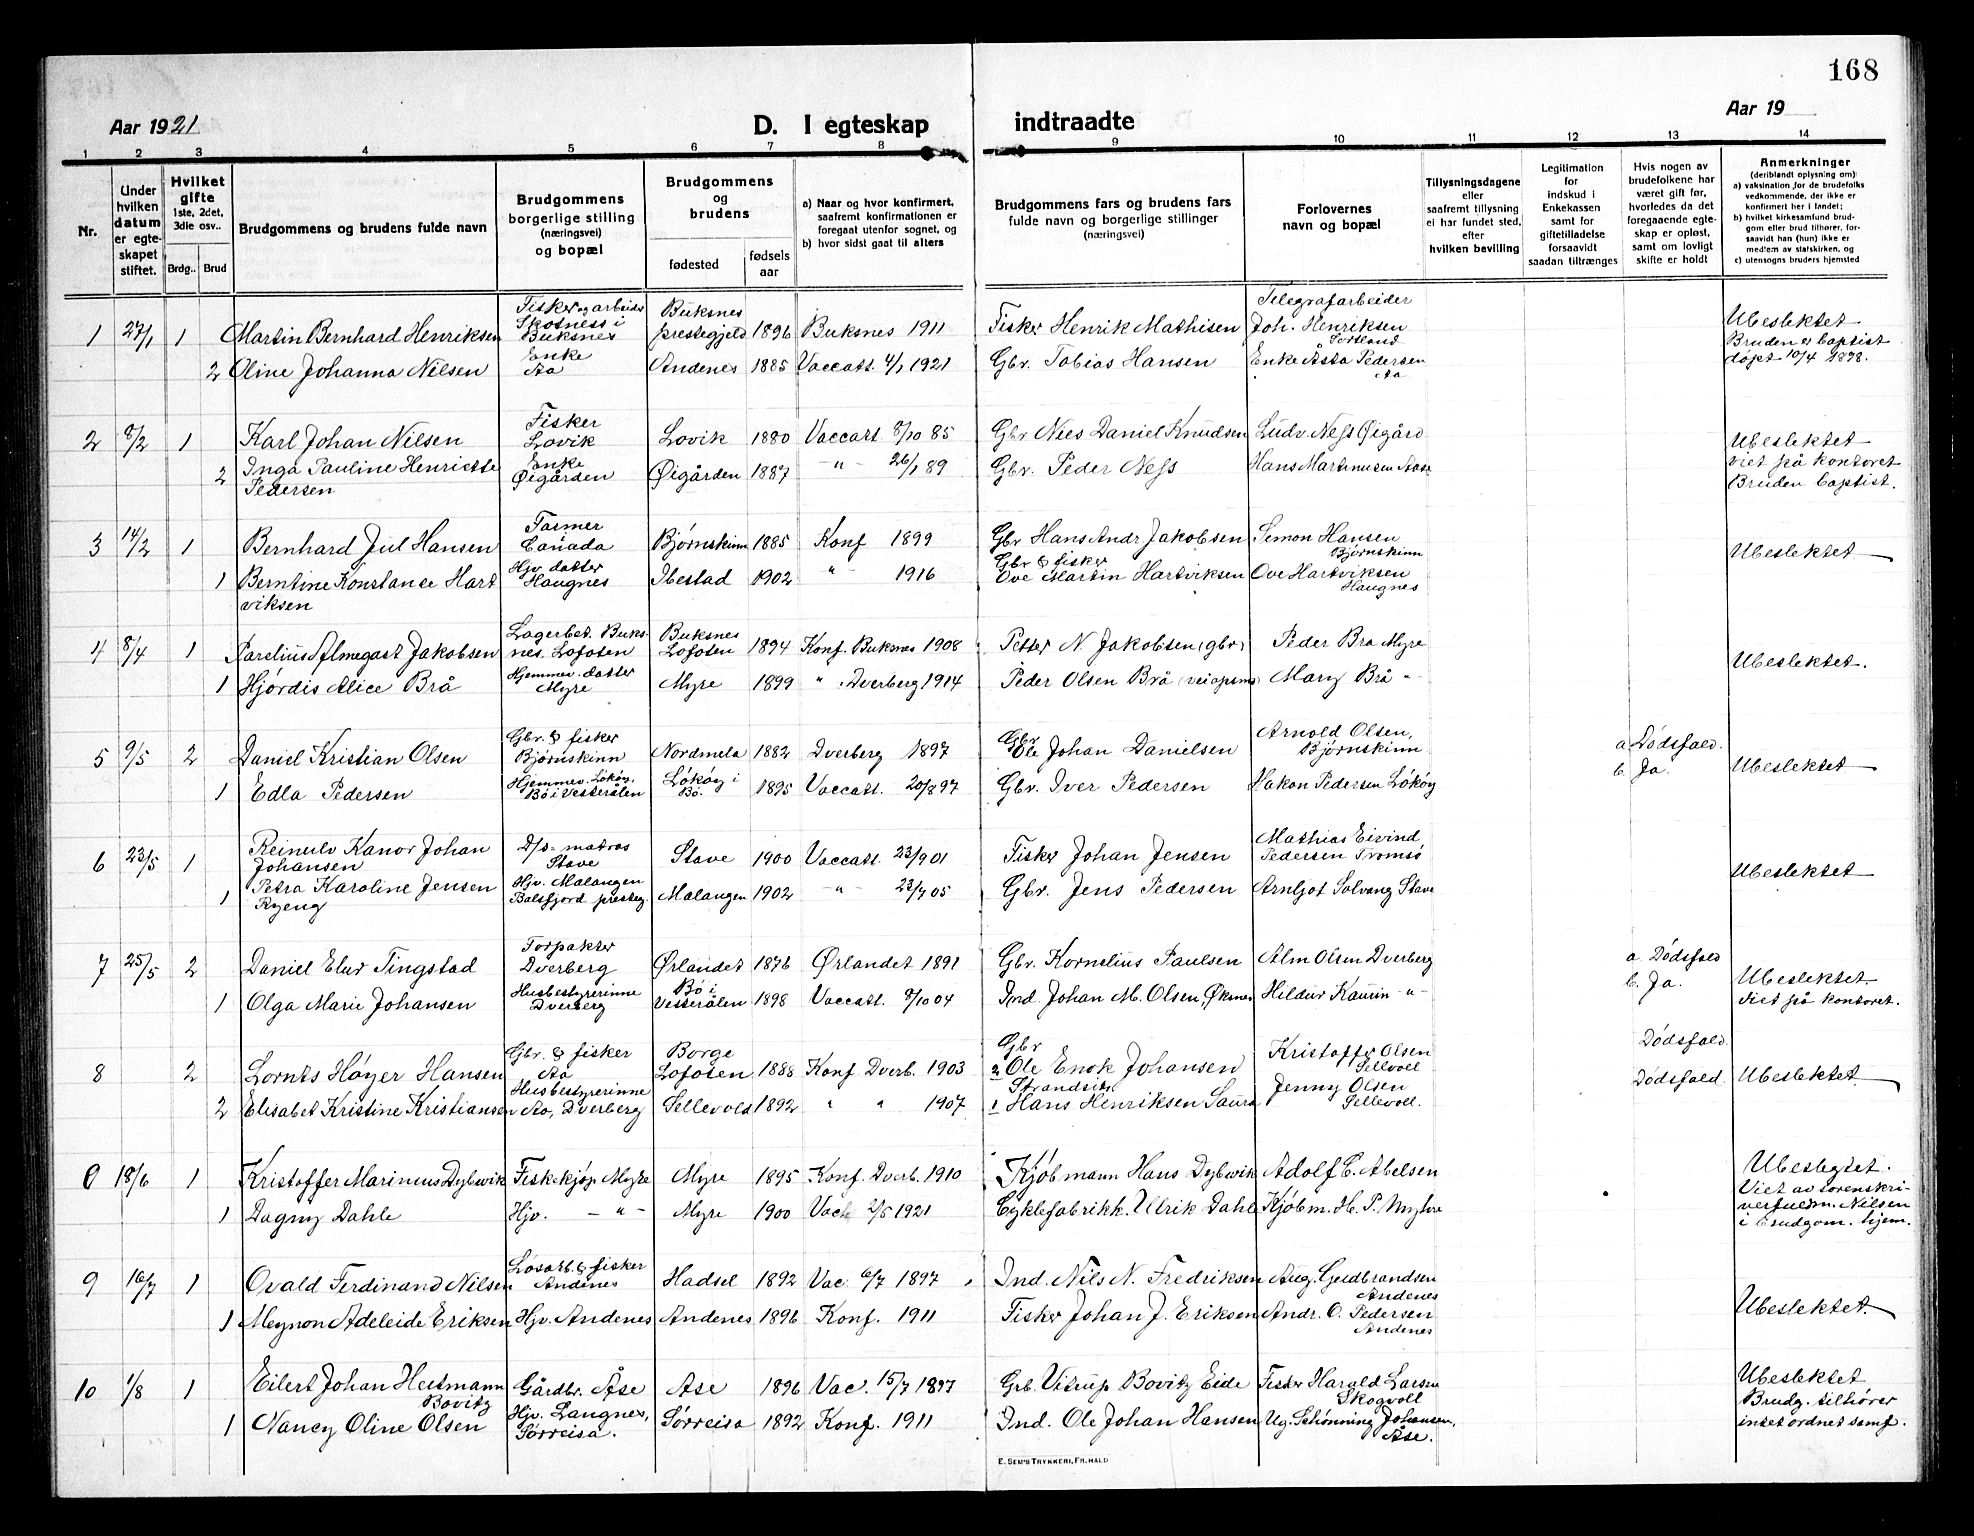 168
Aar 1921
D. I egteskap indtraadte
Aar 19
1 2 3 4 5 6 7 8 9 10 11 12 13 14
Nr.
Under hvilken datum er egteskapet stiftet.
Hvilket gifte
1ste, 2det, 3die osv..
Brdg.. Brud
Brudgommens og brudens fulde navn
Brudgommens borgerlige stilling (næringsvei) og bopæl
Brudgommens og brudens
fødested
fødselsaar
a) Naar og hvor konfirmert, saafremt konfirmationen er foregaat utenfor sognet, og
b) hvor sidst gaat til alters
Brudgommens fars og brudens fars fulde navn og borgerlige stillinger (næringsvei)
Forlovernes navn og bopæl
Tillysningsdagene eller saafremt tillysning ei har fundet sted, efter hvilken bevilling
Legitimation for indskud i Enkekassen samt for giftetilladelse forsaavidt saadan tiltrænges
Hvis nogen av brudefolkene har været gift før, hvorledes da det foregaaende egteskap er opløst, samt om lovligt skifte er holdt
Anmerkninger
(deriblandt oplysning om):
a) vaksination for de brudefolks vedkommende, der ikke er konfirmert her i landet;
b) hvilket kirkesamfund brudgom eller brud tilhører, forsaavidt han (hun) ikke er medlem av statskirken, og
c) utensogns bruders hjemsted
1 27/1 1 Martin Bernhard Henriksen Fisker og arbeids Skotness i Buksnes Buksnes prestegjeld 1896 Buksnes 1911 Fisker Henrik Mathisen Telegrafarbeider Joh. Henriksen Sortland
2 Oline Johanna Nilsen Enke Aa Andenes 1885 Vaccatt. 4/1 1921 Gbr. Tobias Hansen Enke Asta Pedersen Aa
Ubeslektet Bruden er baptist døpt 10/4 1898.
2 8/2 1 Karl Johan Nilsen Fisker Lovik Lovik 1880 Vaccatt 8/10 85 Gbr Niels Daniel Knudsen Ludv. Ness Øigård
2 Inga Pauline Henriette Pedersen Enke Øigården Øigården 1887 -"- 26/1 89 Gbr. Peder Ness Hans Martinusen Aase
Ubeslektet viet på kontoret Bruden baptist.
3 14/2 1 Bernhard Jul Hansen Farmer Canada Bjørnskinn 1885 Konf 1899 Gbr Hans Andr Jakobsen Simon Hansen Bjørnskinn
1 Berntine Konstanse Hartviksen Hjv. datter Haugnes Ibestad 1902 " 1916 Gbr & fisker Ove Martin Hartviksen Ove Hartviksen Haugnes
Ubeslektet
4 8/4 1 Parelius Almegast Jakobsen Lagerbet. Buksnes. Lofoten Buksnes Lofoten 1894 Konf. Buksnes 1908 Petter N. Jakobsen (gbr) Peder Bra Myre
1 Hjørdis Alice Brå Hjemmev. datter Myre Myre 1899 " Dverberg 1914 Peder Olsen Brå (veiopsm) Mary Brå "
Ubeslektet.
5 9/5 2 Daniel Kristian Olsen Gbr. & fisker Bjørnskinn Nordmela 1882 Dverberg 1897 Gbr Ole Johan Danielsen Arnold Olsen, Bjørnskinn
1 Edla Pedersen Hjemmev. Løkøy, Bø i Vesterålen Løkøy i Bø. 1895 Vaccatt. 20/8 97 Gbr. Iver Pedersen Hakon Pedersen Løkøy
a Dødsfald. b. Ja. Ubeslektet
6 23/5 1 Reinulv Kanor Johan Johansen D/s- matros Stave Stave 1900 Vaccatt. 23/9 01 Fisker Johan Jensen Mathias Eivind Pedersen Tromsø
1 Petra Karoline Jensen Ryeng Hjv. Malangen Balsfjord presteg. Malangen 1902 -"- 23/7 05 Gbr. Jens Pedersen Arnljot Solvang Stave
Ubeslektet
7 25/5 2 Daniel Elur Tingstad Forpakter Dverberg Ørlandet 1876 Ørlandet 1891 Gbr. Kornelius Paulsen Alm Olsen Dverberg
1 Olga Marie Johansen Husbestyrerinne Dverberg Bø i Vesterålen 1898 Vaccatt. 8/10 04 Ind. Johan M. Olsen, Øksnes Hildur Kaurin -"-
a. Dødsfald b. Ja. Ubeslektet. Viet på kontoret.
8 2 Lornts Høyer Hansen Gbr. & fisker Aa Borge Lofoten 1888 Konf Dverb. 1903 Gbr 2 Ole Enok Johansen Kristoffer Olsen Sellevoll
2 Elisabet Kristine Kristiansen Husbestyrerinne Aa, Dverberg Sellevold 1892 " " 1907 Strandsitr 1 Hans Henriksen Saura Jenny Olsen Sellevoll.
Dødsfald. Dødsfald. Ubeslektet.
0 18/6 1 Kristoffer Marinius Dybwik Fiskekjøp Myre Myre 1895 Konf. Dverb. 1910 Kjøbmann Hans Dybwik Adolf E. Abelsen
1 Dagny Dahle Hjv. -"- Myre 1900 Vach 2/5 1921 Cyklefabrikk. Ulrik Dahl Kjøbm. H. P. Myhre
Ubeslegtet. Viet av sorenskriverfuldm. Nilsen i brudgom. hjem.
9 16/7 1 Ovald Ferdinand Nilsen Løsarb & fisker Andenes Hadsel 1892 Vac. 6/7 1897 Ind. Nils N. Fredriksen Aug. Gudbrandsen Andenes
1 Meynon Adeleide Eriksen Hjv. Andenes Andenes 1896 Konf. 1911 Fisker Johan J. Eriksen Andr. O. Pedersen Andenes
Ubeslektet.
10 1/8 1 Eilert Johan Heitmann Bovitz Gårdbr. Åse Ase 1896 Vac. 15/7 1897 Grb. Vitrup Bovitz Eide Fisker Harald Larsen Skogvoll
1 Nancy Oline Olsen Hjv. Langnes, Sørreisa. Sørreisa 1892 Konf. 1911 Ind. Ole Johan Hansen Ug. Schønning Johansen, Åse.
Ubeslektet Brudg. tilhører intet ordnet samf.
E. SEM'S TRYKKERI, FR. HALD